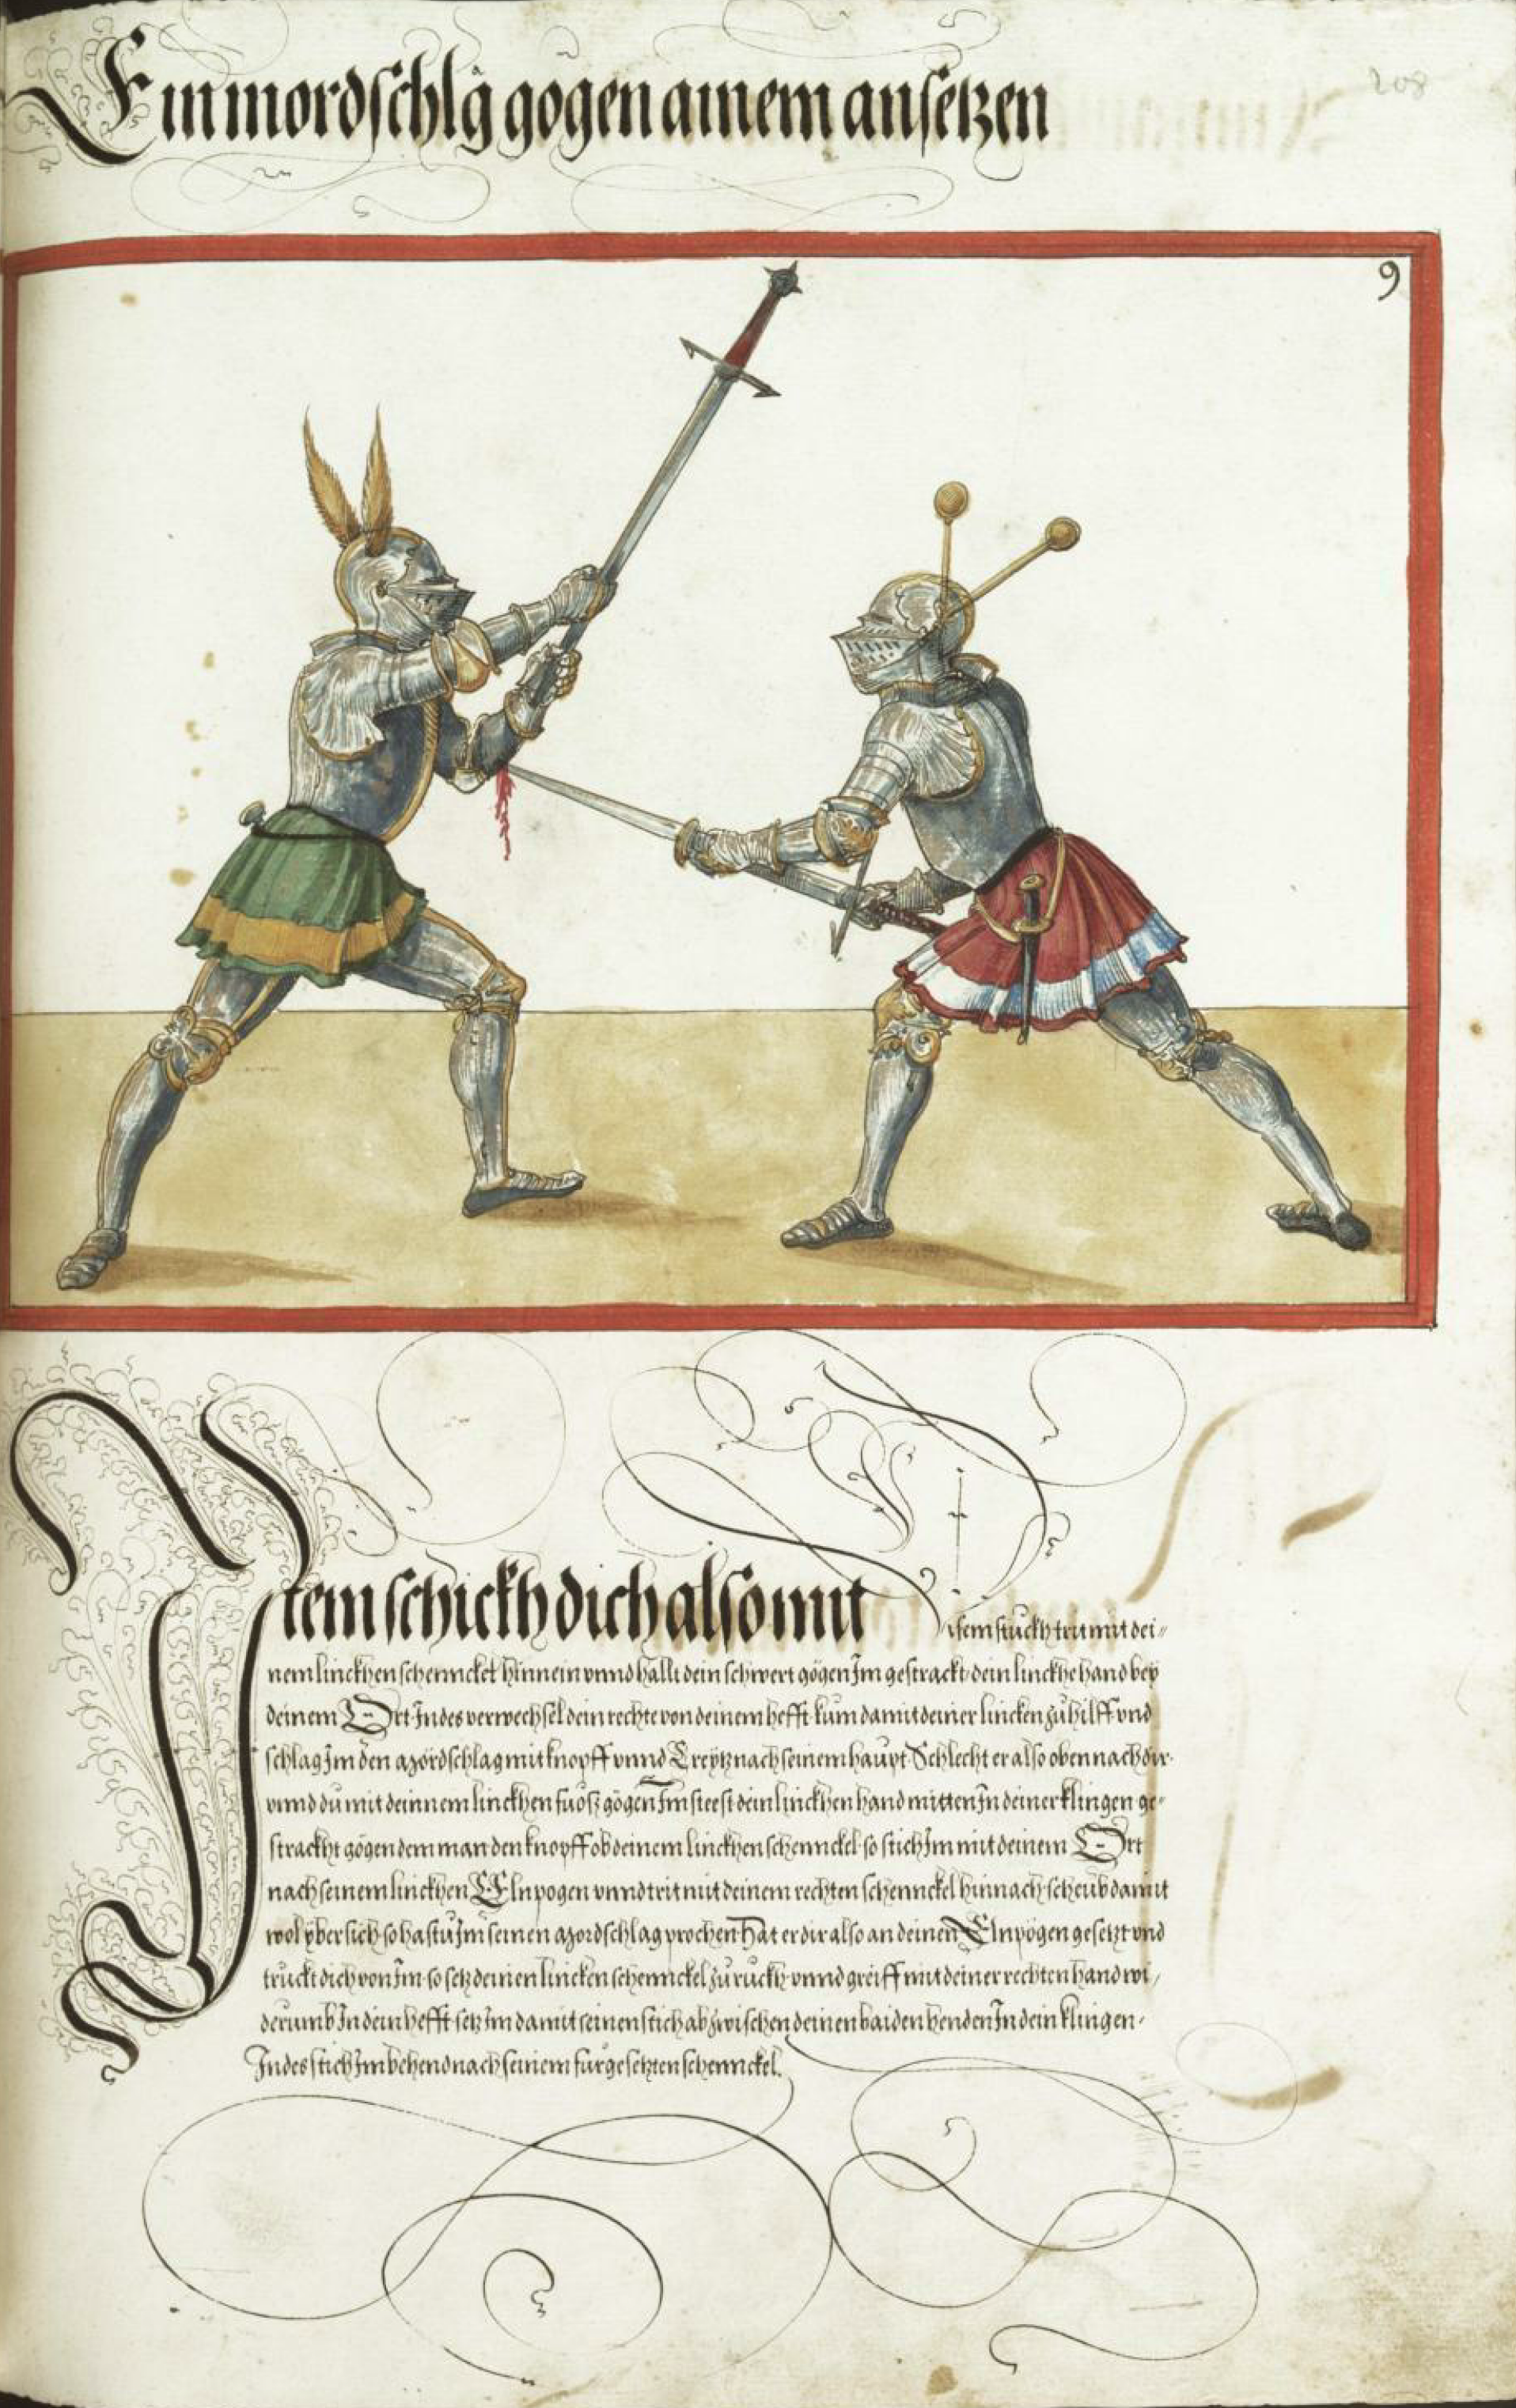 Ein mordschlg gögen ainem ansetzen
208
9
Item schickh dich also mit
disem stuckh trit mit dei=
nem linckhen schennckel hinnein vnnd hallt dein schwert gögen Im gestrackt dein linckhe hand bey
deinem Ort Indes verwechsel dein rechte von deinem hefft kum damit deiner lincken zu hilff vnd
schlag Im den mordschlag mit knopff vnnd Creytz nach seinem haupt Schlecht er also oben nach dir
vnnd du mit deinnem linckhen fuosz gögen Im steest dein linckhen hand mitten In deiner klingen ge=
strackht gögen dem man den knopff ob deinem linckhen schennckel so stich Im mit deinem Ort
nach seinem linckhen Elnpogen vnnd trit mit deinem rechten schennckel hinnach scheub damit
wol yber sich so hastu Im seinen mordschlag prochen Hat er dir also an deinen Elnpögen gesetzt vnd
truckt dich von Im so setz deinen lincken schennckel zu ruckh vnnd greiff mit deiner rechten hand wi=
derumb In dein hefft setz Im damit seinen stich ab zwischen deinen baiden henden In dein klingen
Indes stich Im behend nach seinem furgesetzten schennckel.